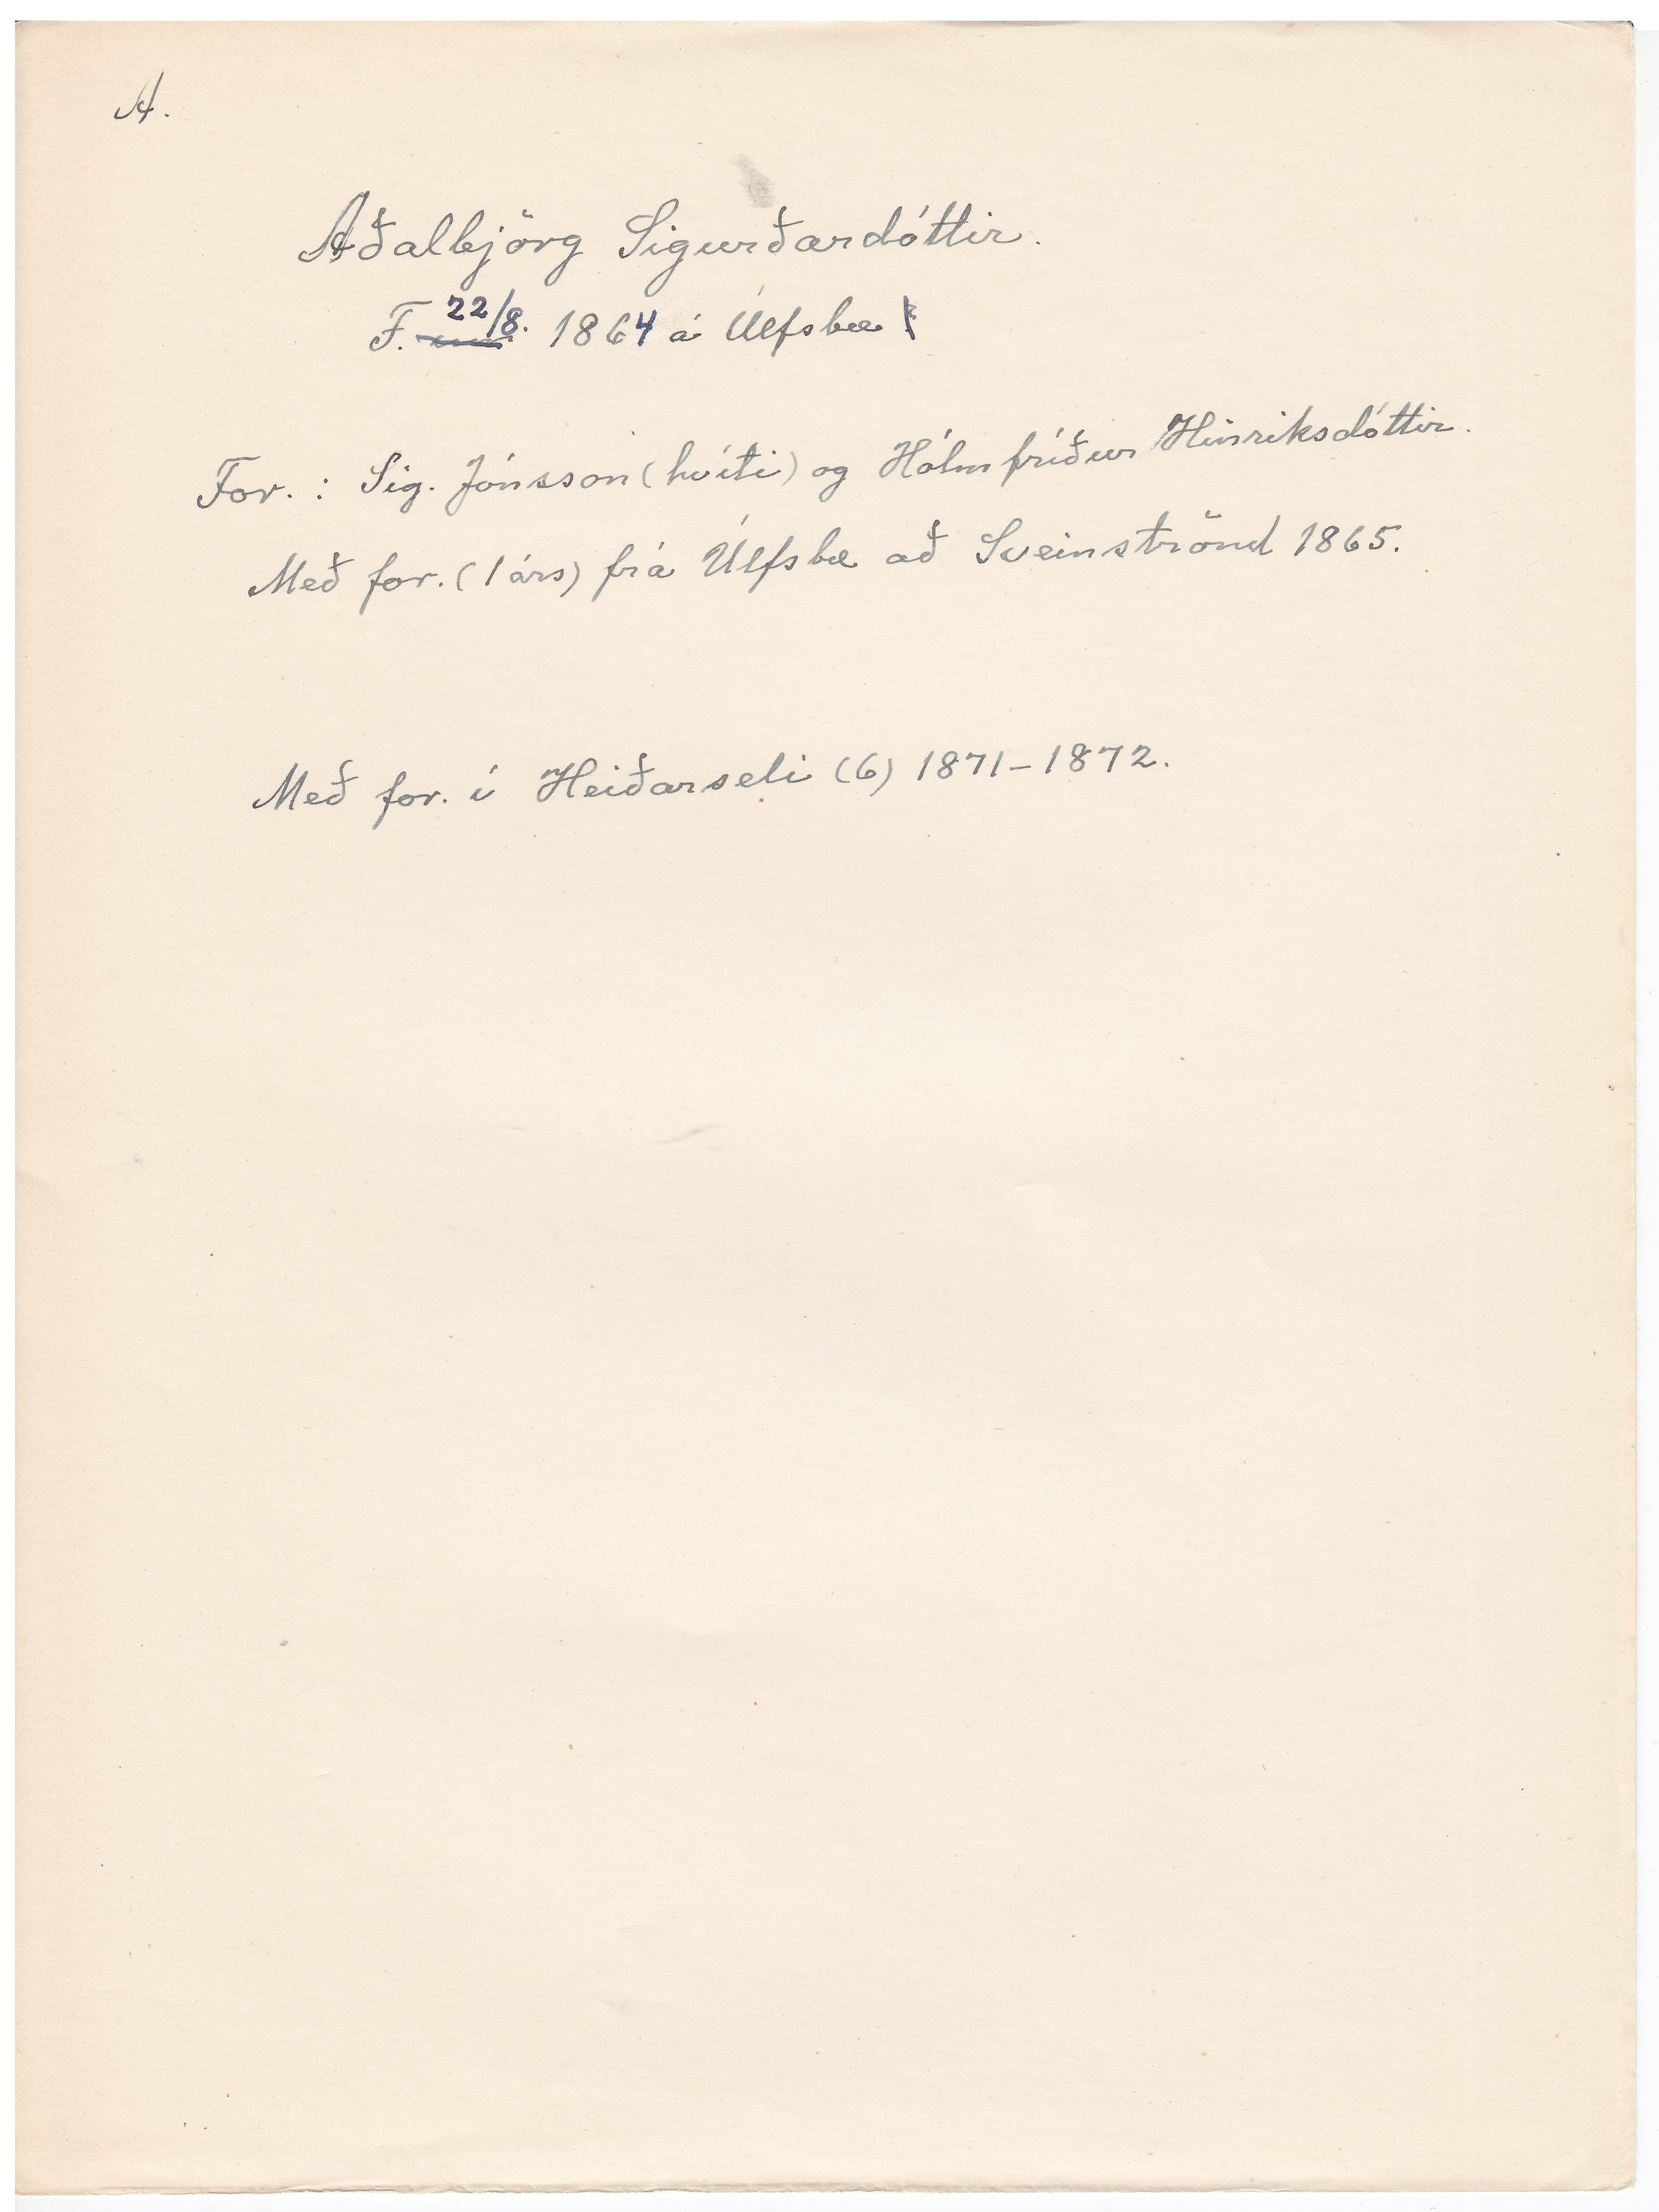 A.
Aðalbjörg Sigurðardóttir.
F. 22/8. 1864 á Úlfsbæ
For. : Sig. Jónsson (hvíti) og Hólmfríður Hinriksdóttir.
Með for. (1 árs) frá Úlfsbæ að Sveinströnd 1865.
Með for. í Heiðarseli (6) 1871-1872.